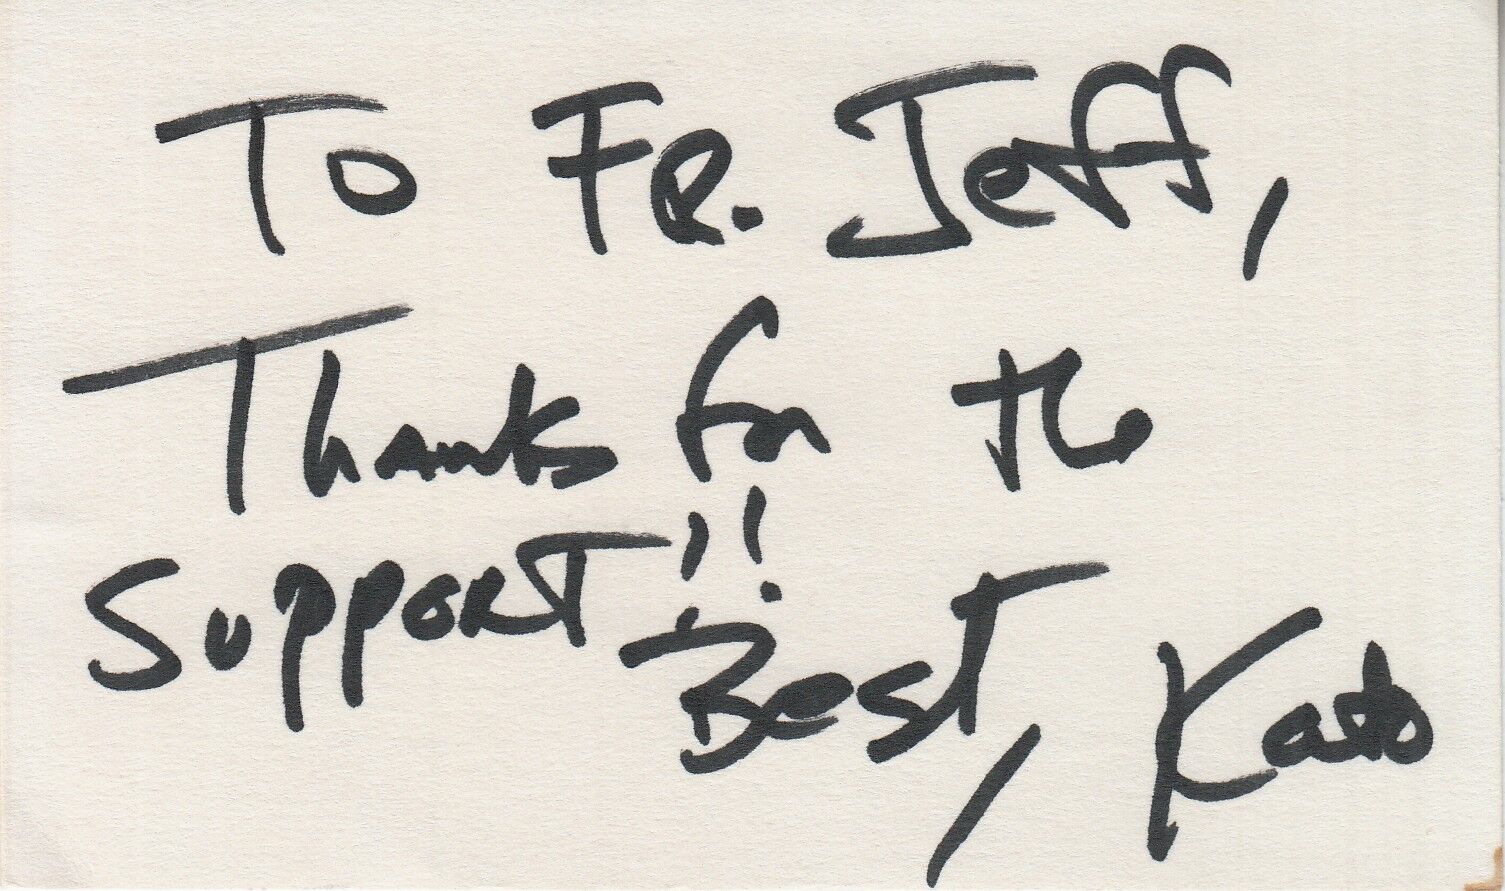 To Fr. Jeff,
Thanks for the
support!!
Best, Kato